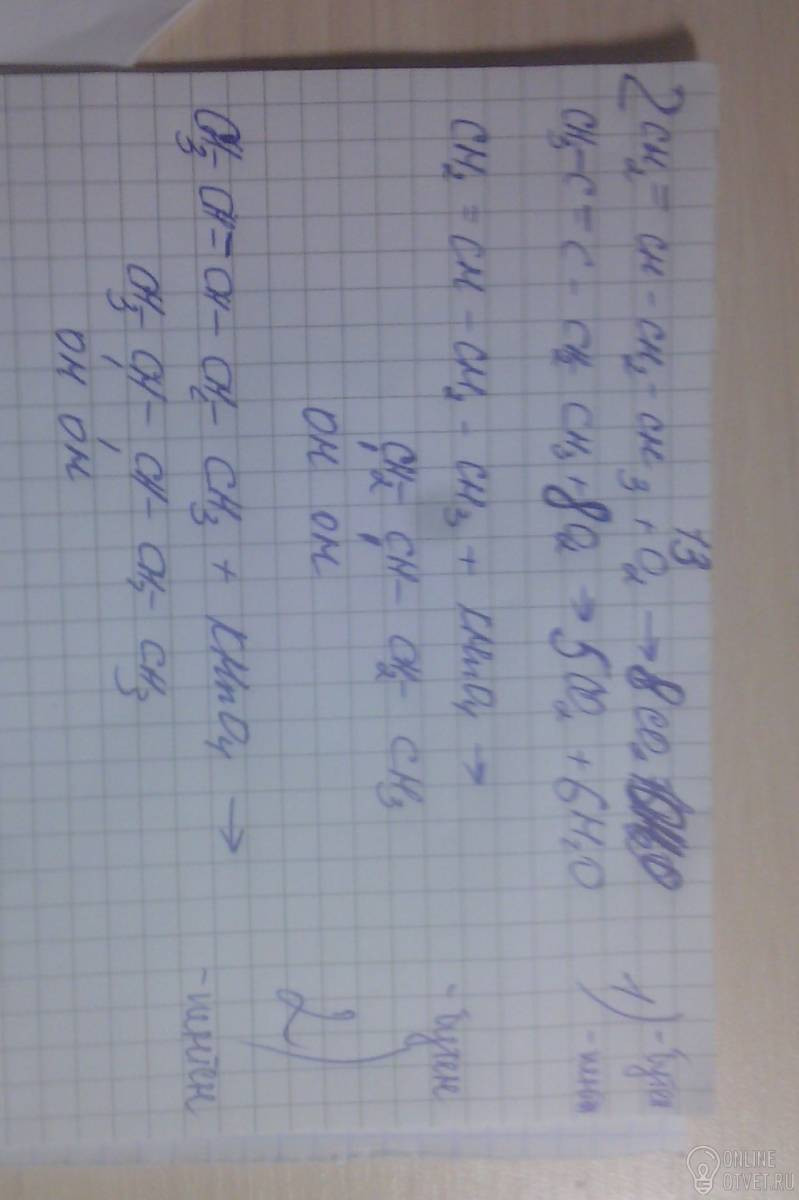 2CH₂=CH-CH₂-CH₃ + 13O₂ → 8CO₂ 1) -бута
CH₃-C=C-CH₂ CH₃+8O₂ → 5CO₂ + 6H₂O
CH₂=CH-CH₂-CH₃ + KMnO₄ → -бутен
CH₂-CH-CH₂-CH₃
OH OH 2)
CH₃-CH=CH-CH₂-CH₃ + KMnO₄ → -пентен
CH₃-CH-CH-CH₃-CH₃
OH OH
ONLINE
OTVET.RU